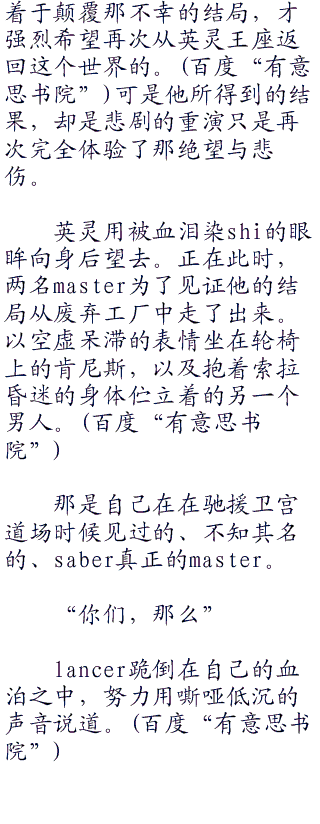 着于颠覆那不幸的结局，才
强烈希望再次从英灵王座返
回这个世界的。(百度“有意
思书院”)可是他所得到的结
果，却是悲剧的重演只是再
次完全体验了那绝望与悲
伤。
英灵用被血泪染shi的眼
眸向身后望去。正在此时，
两名master为了见证他的结
局从废弃工厂中走了出来。
以空虚呆滞的表情坐在轮椅
上的肯尼斯，以及抱着索拉
昏迷的身体伫立着的另一个
男人。(百度“有意思书
院”)
那是自己在在驰援卫宫
道场时候见过的、不知其名
的、saber真正的master。
“你们，那么”
lancer跪倒在自己的血
泊之中，努力用嘶哑低沉的
声音说道。(百度“有意思书
院”)